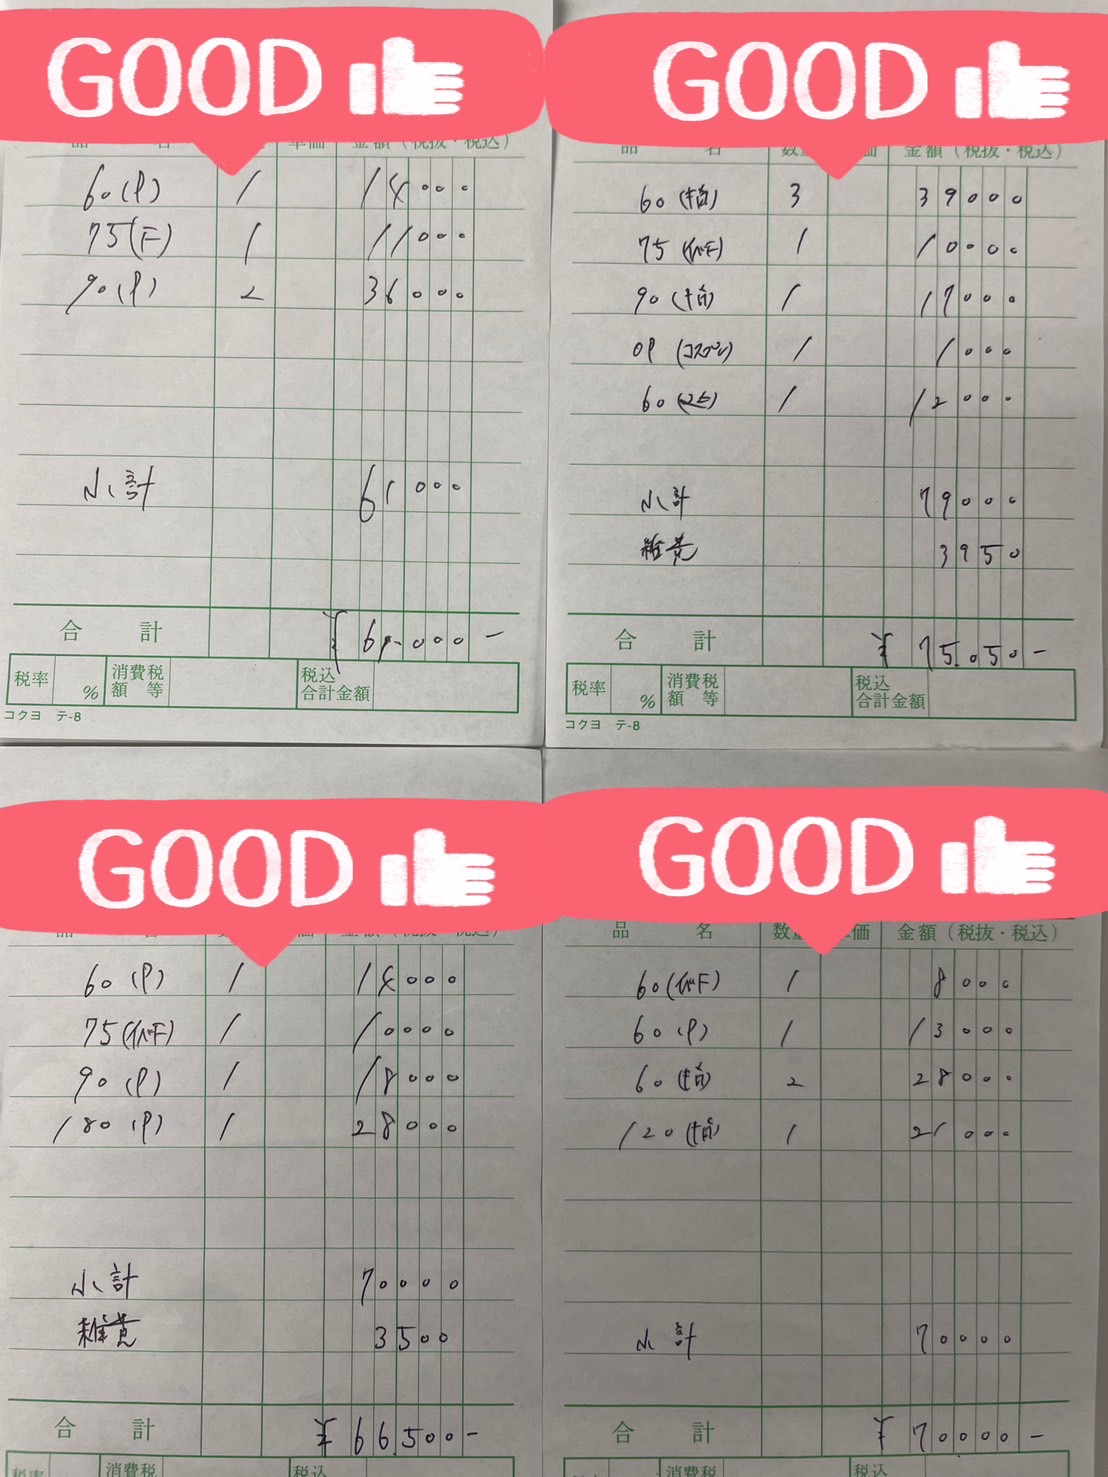 GOOD
金額（税抜・税込）
60(P) 1 14000
75(F) 1 11000
90(P) 2 36000
小計 61000
合計 ¥61.000-
税率 % 消費税額等 税込合計金額
コクヨ テ-8
GOOD
品名 金額（税抜・税込）
60 3 39000
75 1 10000
90 1 17000
OP (コスプレ) 1 1000
60 1 12000
小計 79000
雑費 3950
合計 ¥75.050-
税率 % 消費税額等 税込合計金額
コクヨ テ-8
GOOD
60(P) 1 14000
75(イバF) 1 10000
90(P) 1 18000
180(P) 1 28000
小計 70000
雑費 3500
合計 ¥66.500-
消費税 税込
GOOD
品名 金額（税抜・税込）
60(イバF) 1 8000
60(P) 1 13000
60 2 28000
120 1 21000
小計 70000
合計 ¥70000-
消費税 税込